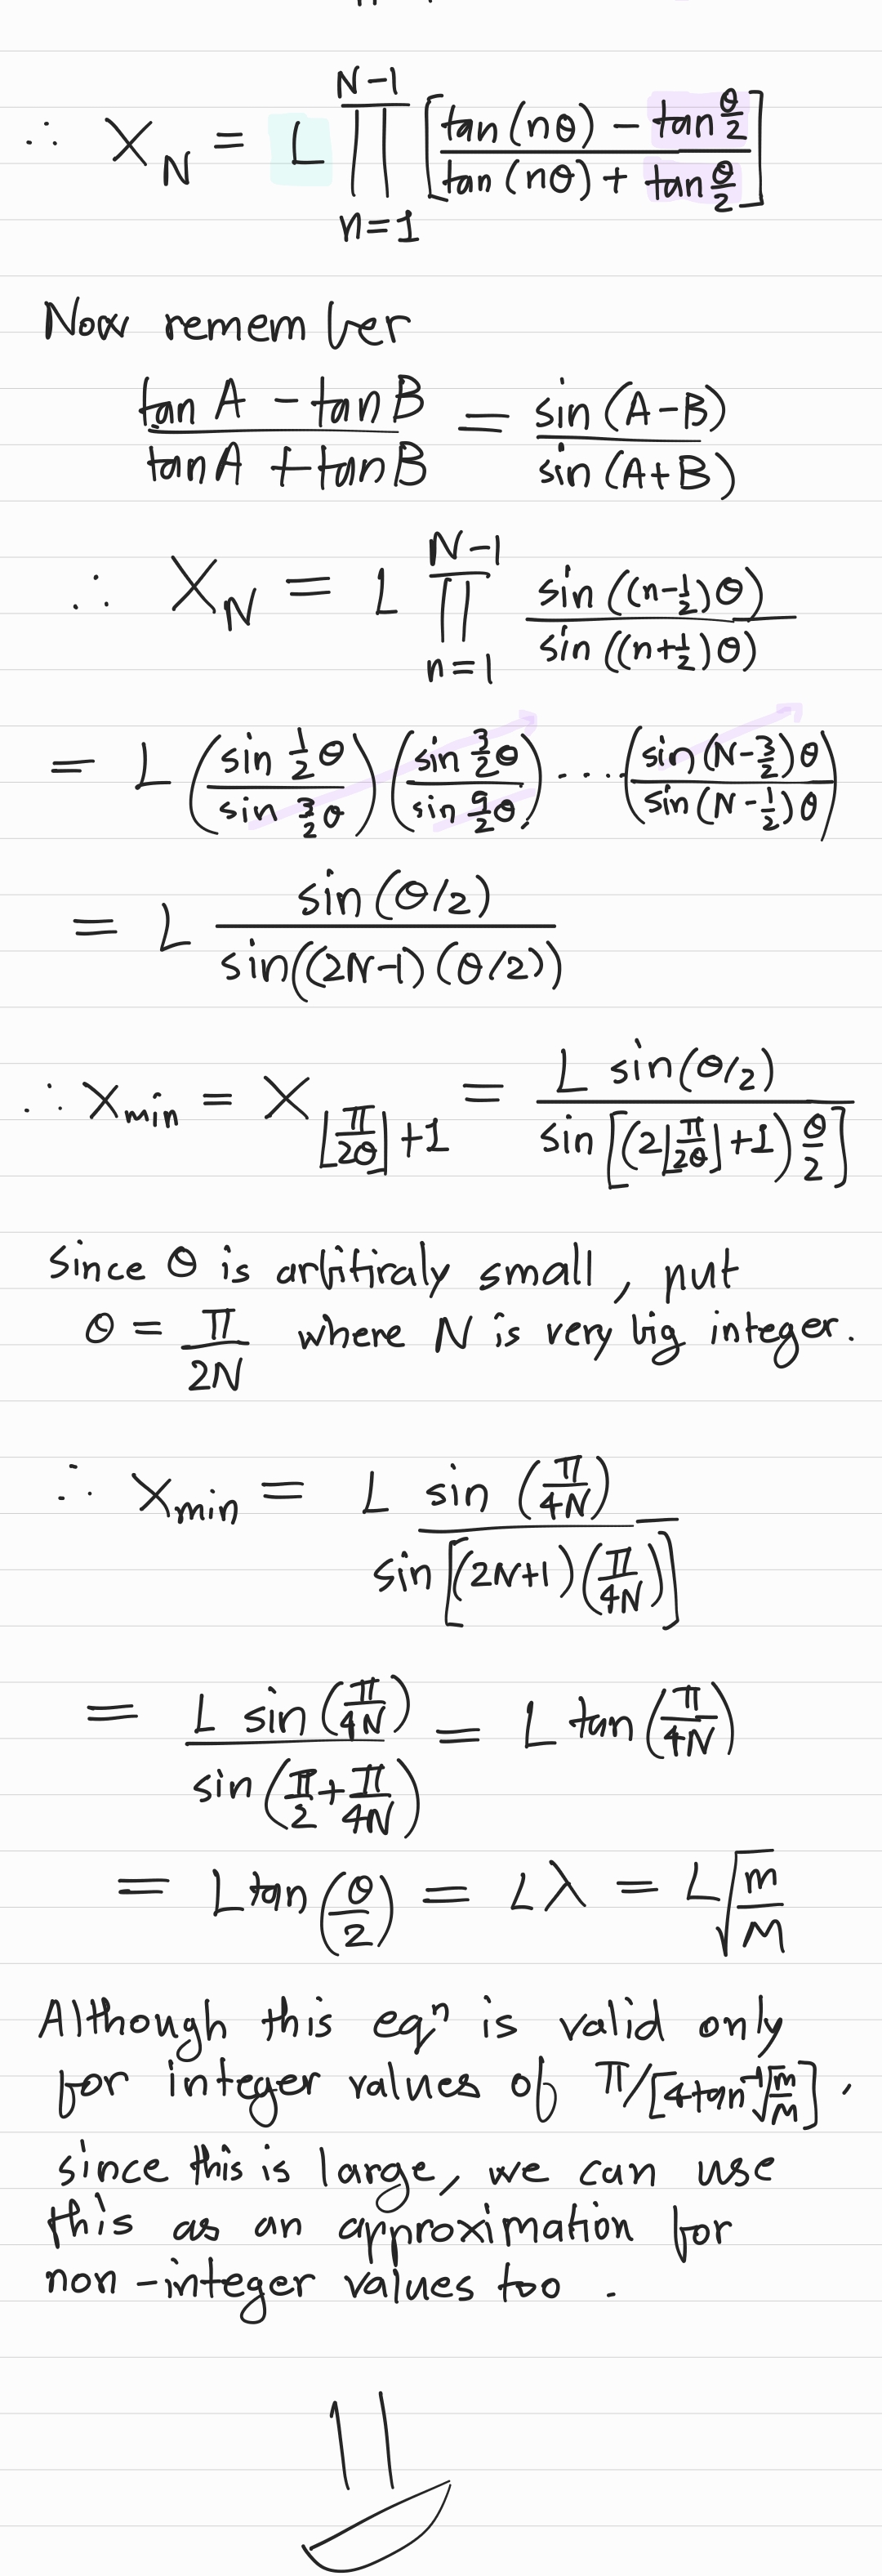 ∴ X_N = L ∏_{n=1}^{N-1} [ (tan(nθ) - tan θ/2) / (tan(nθ) + tan θ/2) ]
Now remember
(tan A - tan B) / (tan A + tan B) = sin(A-B) / sin(A+B)
∴ X_N = L ∏_{n=1}^{N-1} sin((n-1/2)θ) / sin((n+1/2)θ)
= L (sin 1/2 θ / sin 3/2 θ) (sin 3/2 θ / sin 9/2 θ) .... (sin(N-3/2)θ / sin(N-1/2)θ)
= L sin(θ/2) / sin((2N-1)(θ/2))
∴ x_min = X_{⌊π/2θ⌋+1} = L sin(θ/2) / sin[(2⌊π/2θ⌋+1) θ/2]
since θ is arbitiraly small, put
θ = π/2N where N is very big integer.
∴ x_min = L sin(π/4N) / sin[(2N+1)(π/4N)]
= L sin(π/4N) / sin(π/2 + π/4N) = L tan(π/4N)
= L tan(θ/2) = Lλ = L√(m/M)
Although this eqⁿ is valid only
for integer values of π/[4tan⁻¹√(m/M)].
since this is large, we can use
this as an approximation for
non-integer values too.